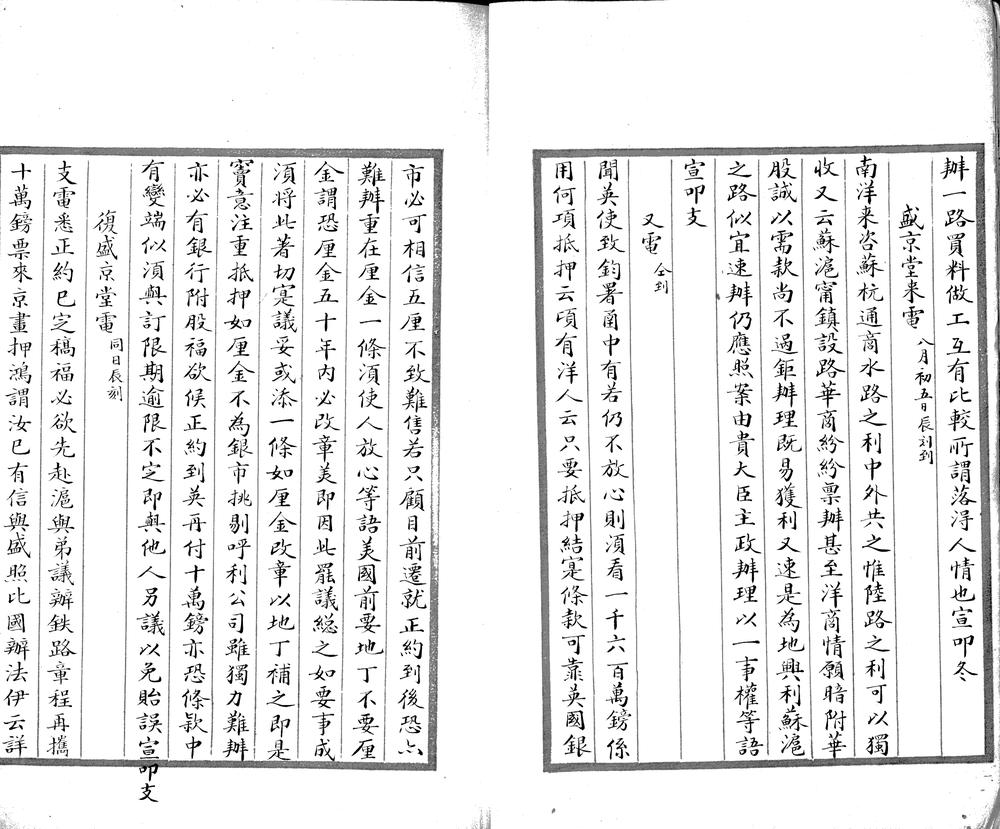 辦一路買料做工互有比較所謂落得人情也宣叩冬
盛京堂來電 八月初五日辰刻到
南洋来咨蘇杭通商水路之利中外共之惟陸路之利可以獨
收又云蘇滬甯鎮設路華商紛紛禀辦甚至洋商情願暗附華
股誠以需款尚不過鉅辦理既易獲利又速是為地興利蘇滬
之路似宜速辦仍應照案由貴大臣主政辦理以一事權等語
宣叩支
又電 仝到
聞英使致鈞署函中有若仍不放心則須看一千六百萬鎊係
用何項抵押云頃有洋人云只要抵押結寔條款可靠英國銀
市必可相信五厘不致難售若只顧目前遷就正約到後恐亦
難辦重在厘金一條須使人放心等語美國前要地丁不要厘
金謂恐厘金五十年內必改章美即因此罷議總之如要事成
須將此著切寔議妥或添一條如厘金改章以地丁補之即是
竇意注重抵押如厘金不為銀市挑剔呼利公司雖獨力難辦
亦必有銀行附股福欲候正約到英再付十萬鎊亦恐條款中
有變端似須與訂限期逾限不定即與他人另議以免貽誤宣叩支
復盛京堂電 同日辰刻
支電悉正約已定稿福必欲先赴滬與弟議辦鉄路章程再攜
十萬鎊票來京畫押鴻謂汝已有信與盛照比國辦法伊云詳